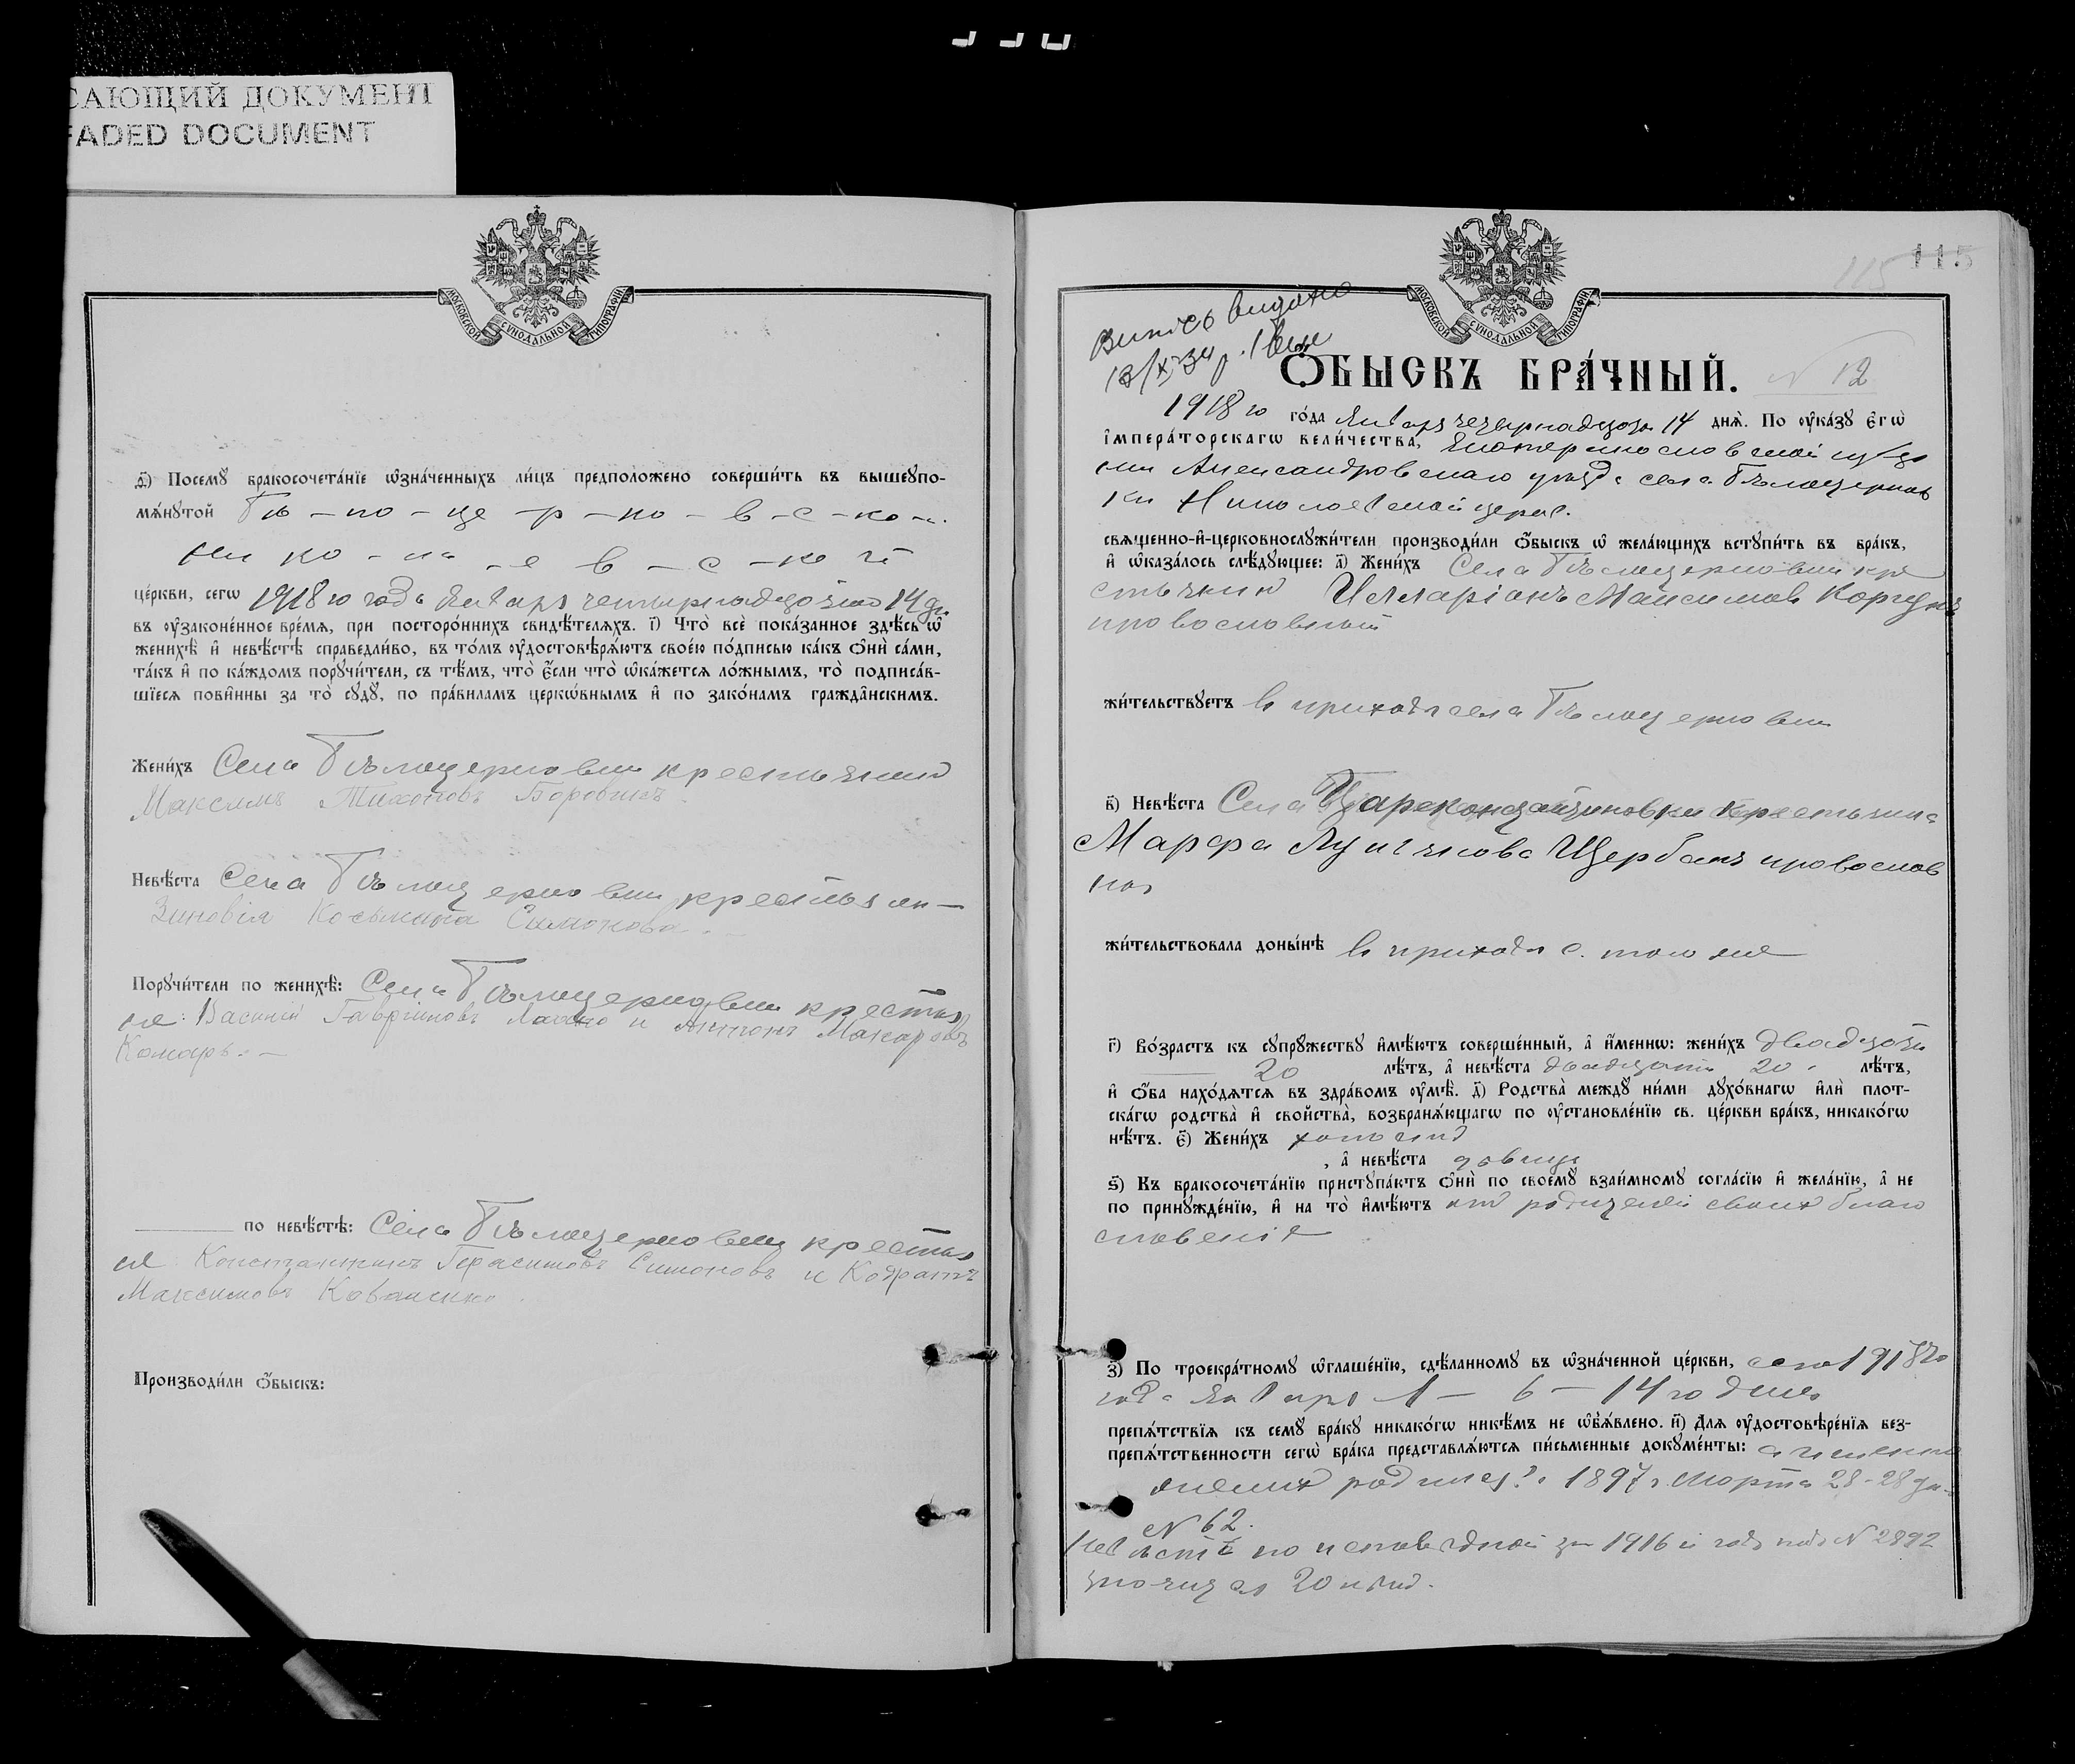 САЮЩИЙ ДОКУМЕНТ
FADED DOCUMENT
МОСКОВСКОЙ СѴНОДАЛЬНОЙ ТИПОГРАФІИ
д҃) Посемꙋ бракосочета́нїе ѡзна́ченныхъ ли́цъ предположено соверши́ть въ вышеꙋпо-
мѧ́нꙋтой Бѣ - ло - це - р - ко - в - с - ко - й
Ни ко - ла - е в - с - ко й
це́ркви, сегѡ 1918 го года Января четырнадцатаго 14 дн
въ ᲂу҆законе́нное вре́мѧ, при посторо́ннихъ свидѣ́телѧхъ. і҃) Что̀ всѐ пока́занное здѣ́сь ѡ҆
женихѣ̀ и҆ невѣ́стѣ справедли́во, въ то́мъ ᲂу҆достовѣрѧ́ютъ свое́ю по́дписью ка́къ ѻ҆нѝ са́ми,
та́къ и҆ по ка́ждомъ порꙋчи́тели, съ тѣ́мъ, что̀ є҆́сли что̀ ѡ҆ка́жетсѧ ло́жнымъ, то̀ подписа́в-
шїесѧ пови́нны за то̀ сꙋдꙋ̀, по пра́виламъ церкѡ́внымъ и҆ по зако́намъ гражда́нскимъ.
Жени́хъ Села Бѣлоцерковки крестьянинъ
Максимъ Тихоновъ Боровикъ.
Невѣ́ста Села Бѣлоцерковки крестьян-
Зиновія Косьмина Симонова.
Порꙋчи́тели по женихѣ̀: Села Бѣлоцерковки крестья
не: Василій Гавріиловъ и Антонъ Макаровъ
Комаръ. —
по невѣ́стѣ: Села Бѣлоцерковки крестья
не: Константинъ Герасимовъ Симоновъ и Кодратъ
Максимовъ Коваленко.
Производи́ли ѻ҆́быскъ:
115
115
МОСКОВСКОЙ СѴНОДАЛЬНОЙ ТИПОГРАФІИ
Випись видано
13/X 34 р.
Ѻ҆́БЫСКЪ БРА́ЧНЫЙ.
N 12
1918 го го́да Января четырнадцата 14 днѧ̀. По ᲂу҆ка́зꙋ Є҆гѡ̀
І҆мпера́торскагѡ вели́чества, Екатеринославской губер
ніи Александровскаго уезда села Бѣлоцерков
ки Николаевской церкв.
свѧще́нно-и҆-церковнослꙋжи́тели производи́ли ѻ҆́быскъ ѡ҆ жела́ющихъ встꙋпи́ть въ бра́къ,
и҆ ѡ҆каза́лось слѣ́дꙋющее: а҃) Жени́хъ Села Бѣлоцерковки кре
стьянин Илларіонъ Максимовъ Коргунъ
православный
жи́тельствꙋетъ в приходѣ села Бѣлоцерковки
в҃) Невѣ́ста Села крестьянка
Марфа Лукіянова Щербакъ православ
ная
жи́тельствовала доны́нѣ в приходѣ с. того же
г҃) Во́зрастъ къ сꙋпрꙋ́жествꙋ и҆мѣ́ютъ соверше́нный, а҆ и҆́меннѡ: жени́хъ двадцать
20 лѣ́тъ, а҆ невѣ́ста двадцать 20. лѣ́тъ,
и҆ ѻ҆́ба нахо́дѧтсѧ въ здра́вомъ ᲂу҆мѣ̀. д҃) Родства̀ междꙋ̀ ни́ми дꙋхо́внагѡ и҆лѝ плот-
ска́гѡ родства̀ и҆ свойства̀, возбранѧ́ющагѡ по ᲂу҆становле́нїю св. це́ркви бра́къ, никако́гѡ
нѣ́тъ. є҃) Жени́хъ холостъ
, а҆ невѣ́ста дѣвица
ѕ҃) Къ бракосочета́нїю пристꙋпа́ютъ ѻ҆нѝ по своемꙋ̀ взаи́мномꙋ согла́сїю и҆ жела́нїю, а҆ не
по принꙋжде́нїю, и҆ на то̀ и҆мѣ́ютъ отъ родителей своих благо
словеніе
з҃) По троекра́тномꙋ ѡ҆глаше́нїю, сдѣ́ланномꙋ въ ѡ҆зна́ченной це́ркви, сего 1918 го
года Января 1 — 6 — 14 го дня
препѧ́тствїѧ къ семꙋ̀ бра́кꙋ никако́гѡ никѣ́мъ не ѡ҆б̾ѧ́влено. и҃) Длѧ ᲂу҆достовѣре́нїѧ без-
препѧ́тственности сегѡ̀ бра́ка представлѧ́ютсѧ пи́сьменные докꙋме́нты: а именно
жених родился 1897 г. Марта 28-28 дн.
N 62.
Невѣста по исповедной за 1916 й годъ подъ N 2892
значится 20 лѣтъ.